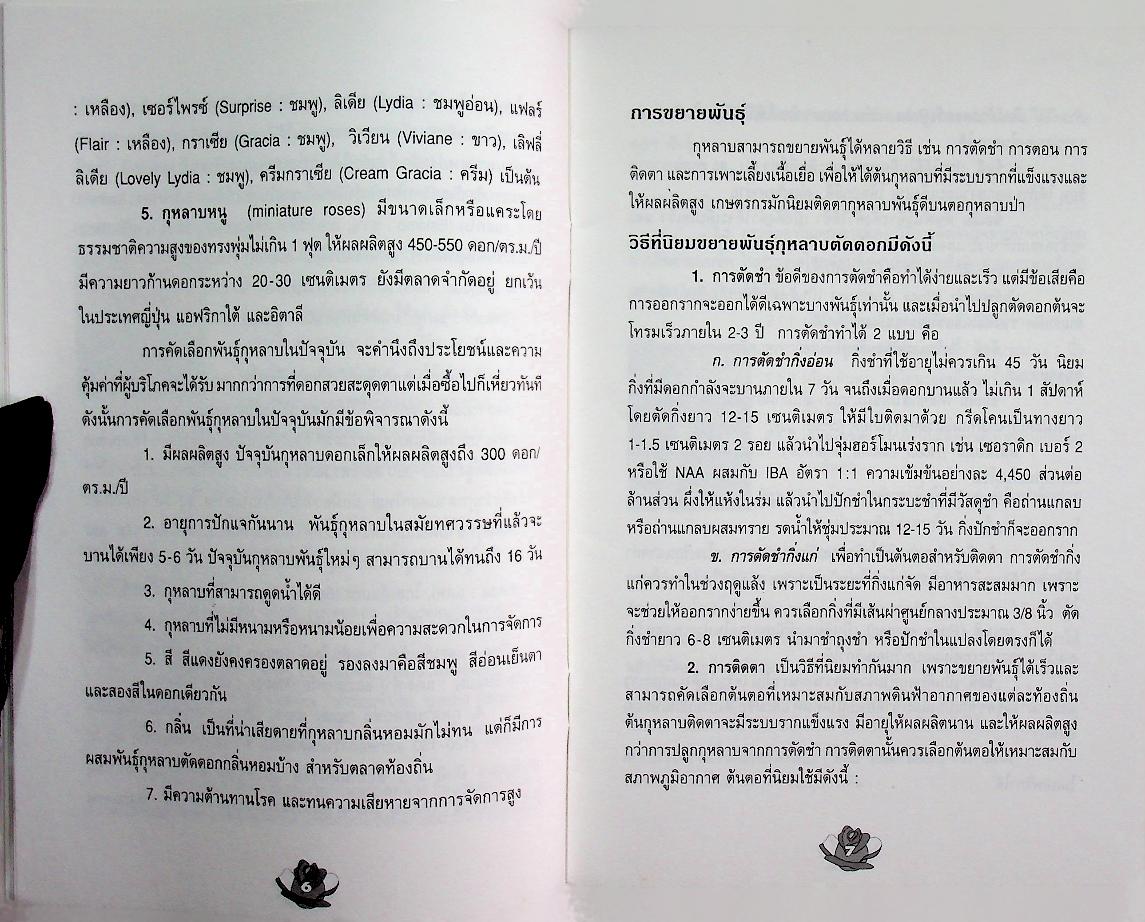 : เหลือง), เซอร์ไพรซ์ (Surprise : ชมพู), ลิเดีย (Lydia : ชมพูอ่อน), แฟลร์
(Flair : เหลือง), กราเซีย (Gracia : ชมพู), วิเวียน (Viviane : ขาว), เลิฟลี่
ลิเดีย (Lovely Lydia : ชมพู), ครีมกราเซีย (Cream Gracia : ครีม) เป็นต้น
5. กุหลาบหนู (miniature roses) มีขนาดเล็กหรือแคระโดย
ธรรมชาติความสูงของทรงพุ่มไม่เกิน 1 ฟุต ให้ผลผลิตสูง 450-550 ดอก/ตร.ม./ปี
มีความยาวก้านดอกระหว่าง 20-30 เซนติเมตร ยังมีตลาดจำกัดอยู่ ยกเว้น
ในประเทศญี่ปุ่น แอฟริกาใต้ และอิตาลี
การคัดเลือกพันธุ์กุหลาบในปัจจุบัน จะคำนึงถึงประโยชน์และความ
คุ้มค่าที่ผู้บริโภคจะได้รับ มากกว่าการที่ดอกสวยสะดุดตาแต่เมื่อซื้อไปก็เหี่ยวทันที
ดังนั้นการคัดเลือกพันธุ์กุหลาบในปัจจุบันมักมีข้อพิจารณาดังนี้
1. มีผลผลิตสูง ปัจจุบันกุหลาบดอกเล็กให้ผลผลิตสูงถึง 300 ดอก/
ตร.ม./ปี
2. อายุการปักแจกันนาน พันธุ์กุหลาบในสมัยทศวรรษที่แล้วจะ
บานได้เพียง 5-6 วัน ปัจจุบันกุหลาบพันธุ์ใหม่ๆ สามารถบานได้ทนถึง 16 วัน
3. กุหลาบที่สามารถดูดน้ำได้ดี
4. กุหลาบที่ไม่มีหนามหรือหนามน้อยเพื่อความสะดวกในการจัดการ
5. สี สีแดงยังคงครองตลาดอยู่ รองลงมาคือสีชมพู สีอ่อนเย็นตา
และสองสีในดอกเดียวกัน
6. กลิ่น เป็นที่น่าเสียดายที่กุหลาบกลิ่นหอมมักไม่ทน แต่ก็มีการ
ผสมพันธุ์กุหลาบตัดดอกกลิ่นหอมบ้าง สำหรับตลาดท้องถิ่น
7. มีความต้านทานโรค และทนความเสียหายจากการจัดการสูง
6
การขยายพันธุ์
กุหลาบสามารถขยายพันธุ์ได้หลายวิธี เช่น การตัดชำ การตอน การ
ติดตา และการเพาะเลี้ยงเนื้อเยื่อ เพื่อให้ได้ต้นกุหลาบที่มีระบบรากที่แข็งแรงและ
ให้ผลผลิตสูง เกษตรกรมักนิยมติดตากุหลาบพันธุ์ดีบนตอกุหลาบป่า
วิธีที่นิยมขยายพันธุ์กุหลาบตัดดอกมีดังนี้
1. การตัดชำ ข้อดีของการตัดชำคือทำได้ง่ายและเร็ว แต่มีข้อเสียคือ
การออกรากจะออกได้ดีเฉพาะบางพันธุ์เท่านั้น และเมื่อนำไปปลูกตัดดอกต้นจะ
โทรมเร็วภายใน 2-3 ปี การตัดชำทำได้ 2 แบบ คือ
ก. การตัดชำกิ่งอ่อน กิ่งชำที่ใช้อายุไม่ควรเกิน 45 วัน นิยม
กิ่งที่มีดอกกำลังจะบานภายใน 7 วัน จนถึงเมื่อดอกบานแล้ว ไม่เกิน 1 สัปดาห์
โดยตัดกิ่งยาว 12-15 เซนติเมตร ให้มีใบติดมาด้วย กรีดโคนเป็นทางยาว
1-1.5 เซนติเมตร 2 รอย แล้วนำไปจุ่มฮอร์โมนเร่งราก เช่น เซอราดิก เบอร์ 2
หรือใช้ NAA ผสมกับ IBA อัตรา 1:1 ความเข้มข้นอย่างละ 4,450 ส่วนต่อ
ล้านส่วน ผึ่งให้แห้งในร่ม แล้วนำไปปักชำในกระบะชำที่มีวัสดุชำ คือถ่านแกลบ
หรือถ่านแกลบผสมทราย รดน้ำให้ชุ่มประมาณ 12-15 วัน กิ่งปักชำก็จะออกราก
ข. การตัดชำกิ่งแก่ เพื่อทำเป็นต้นตอสำหรับติดตา การตัดชำกิ่ง
แก่ควรทำในช่วงฤดูแล้ง เพราะเป็นระยะที่กิ่งแก่จัด มีอาหารสะสมมาก เพราะ
จะช่วยให้ออกรากง่ายขึ้น ควรเลือกกิ่งที่มีเส้นผ่าศูนย์กลางประมาณ 3/8 นิ้ว ตัด
กิ่งชำยาว 6-8 เซนติเมตร นำมาชำถุงชำ หรือปักชำในแปลงโดยตรงก็ได้
2. การติดตา เป็นวิธีที่นิยมทำกันมาก เพราะขยายพันธุ์ได้เร็วและ
สามารถคัดเลือกต้นตอที่เหมาะสมกับสภาพดินฟ้าอากาศของแต่ละท้องถิ่น
ต้นกุหลาบติดตาจะมีระบบรากแข็งแรง มีอายุให้ผลผลิตนาน และให้ผลผลิตสูง
กว่าการปลูกกุหลาบจากการตัดชำ การติดตานั้นควรเลือกต้นตอให้เหมาะสมกับ
สภาพภูมิอากาศ ต้นตอที่นิยมใช้มีดังนี้ :
7